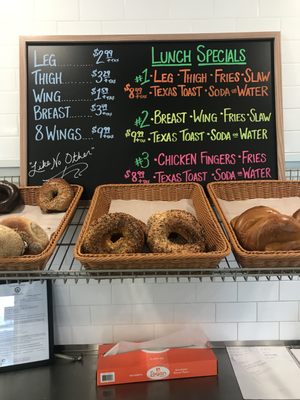 Leg $2.99 +TAX
Thigh
Wing
Breast
8 Wings $9.99 +TAX
"Like No Other"
Lunch Specials
#1 Leg · Thigh · Fries · Slaw
$8.99 +TAX Texas Toast · Soda or Water
#2 Breast · Wing · Fries · Slaw
$9.99 +TAX Texas Toast · Soda or Water
#3 Chicken Fingers · Fries
$8.99 +TAX Texas Toast · Soda or Water